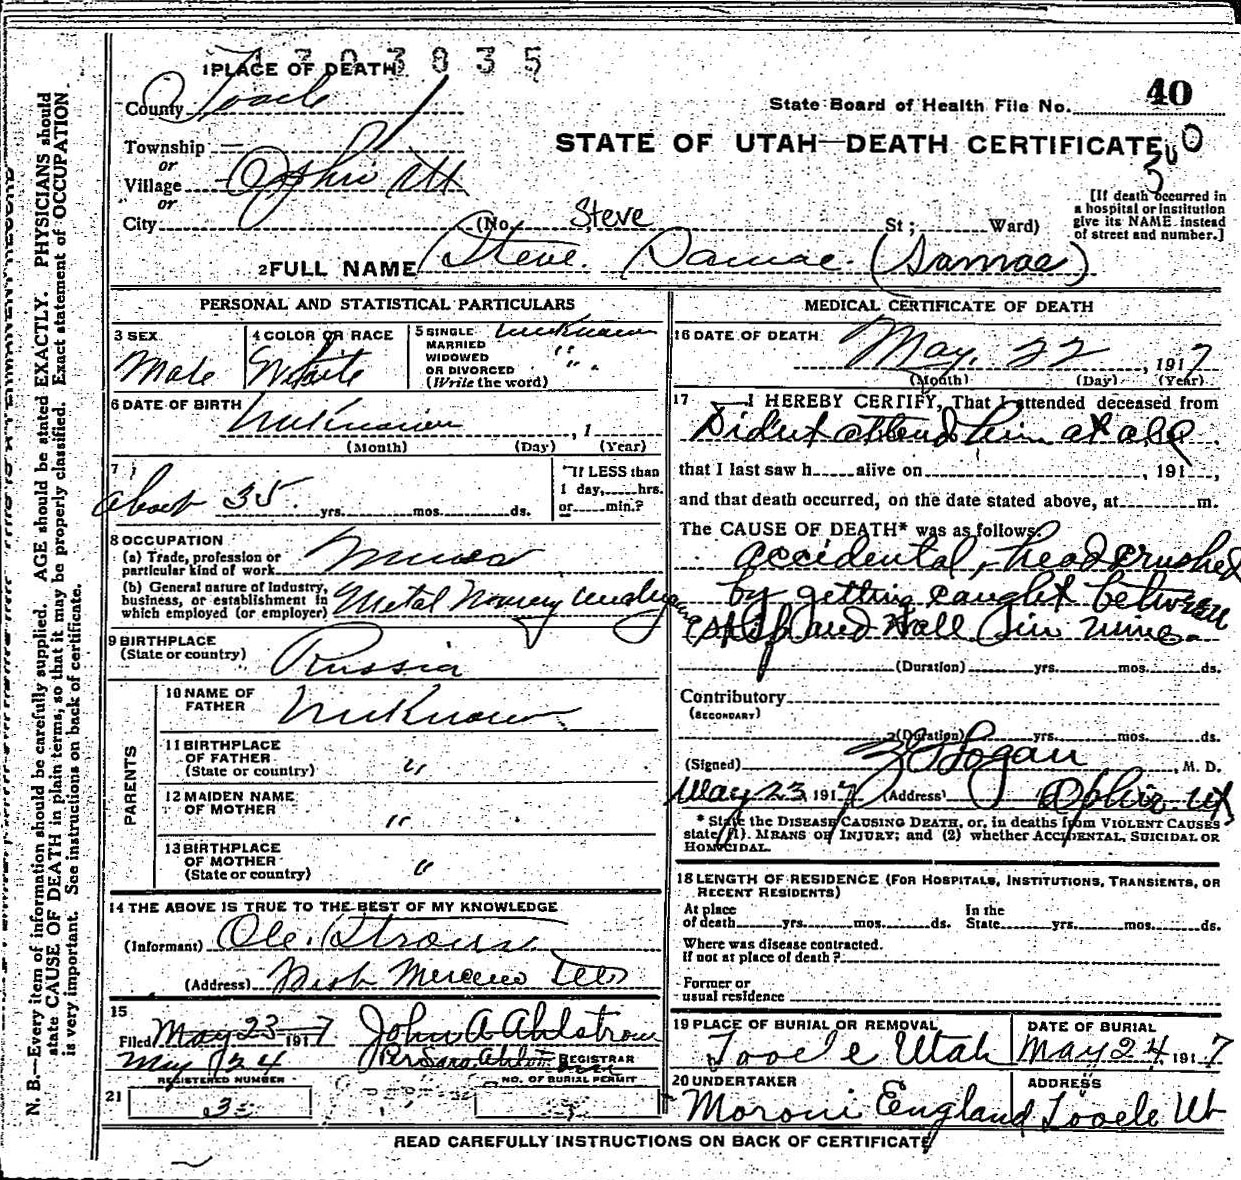 1 PLACE OF DEATH 1 7 0 3 8 3 5
County Tooele
State Board of Health File No. 40
Township
or
STATE OF UTAH—DEATH CERTIFICATE
Village Ophir Ut
or
City (No. Steve St; Ward)
[If death occurred in
a hospital or institution
give its NAME instead
of street and number.]
2 FULL NAME Steve. Damac. (Samac)
PERSONAL AND STATISTICAL PARTICULARS
3 SEX
Male
4 COLOR OR RACE
White
5 SINGLE Unknown
MARRIED "
WIDOWED
OR DIVORCED "
(Write the word)
6 DATE OF BIRTH
Unknown , 1
(Month) (Day) (Year)
7
about 35. yrs. mos. ds.
If LESS than
1 day, hrs.
or min.?
8 OCCUPATION
(a) Trade, profession or
particular kind of work
(b) General nature of industry,
business, or establishment in
which employed (or employer) Metal
9 BIRTHPLACE
(State or country) Russia
PARENTS
10 NAME OF
FATHER Unknown
11 BIRTHPLACE
OF FATHER
(State or country) "
12 MAIDEN NAME
OF MOTHER "
13 BIRTHPLACE
OF MOTHER
(State or country) "
14 THE ABOVE IS TRUE TO THE BEST OF MY KNOWLEDGE
(Informant) Ole.
(Address)
15
Filed May 23 1917 John A Ahlstrom
May 24 Per Sara Ahlstrom REGISTRAR
REGISTERED NUMBER NO. OF BURIAL PERMIT
21 3
MEDICAL CERTIFICATE OF DEATH
16 DATE OF DEATH
May. 22, 1917
(Month) (Day) (Year)
17 I HEREBY CERTIFY, That I attended deceased from
Didnt attend him at all
that I last saw h alive on , 191 ,
and that death occurred, on the date stated above, at m.
The CAUSE OF DEATH* was as follows:
accidental, head crushed
by getting caught between
skip and Wall in mine.
(Duration) yrs. mos. ds.
Contributory
(SECONDARY)
(Duration) yrs. mos. ds.
(Signed) Logan, M. D.
May 23, 1917 (Address) Ophir Ut
* State the DISEASE CAUSING DEATH, or, in deaths from VIOLENT CAUSES
state (1). MEANS OF INJURY; and (2) whether ACCIDENTAL, SUICIDAL OR
HOMICIDAL.
18 LENGTH OF RESIDENCE (FOR HOSPITALS, INSTITUTIONS, TRANSIENTS, OR
RECENT RESIDENTS)
At place In the
of death yrs. mos. ds. State yrs. mos. ds.
Where was disease contracted.
if not at place of death?
Former or
usual residence
19 PLACE OF BURIAL OR REMOVAL
Tooele Utah
DATE OF BURIAL
May 24 1917
20 UNDERTAKER
Moroni England
ADDRESS
Tooele Ut
READ CAREFULLY INSTRUCTIONS ON BACK OF CERTIFICATE
N. B.—Every item of information should be carefully supplied. AGE should be stated EXACTLY. PHYSICIANS should
state CAUSE OF DEATH in plain terms, so that it may be properly classified. Exact statement of OCCUPATION
is very important. See instructions on back of certificate.